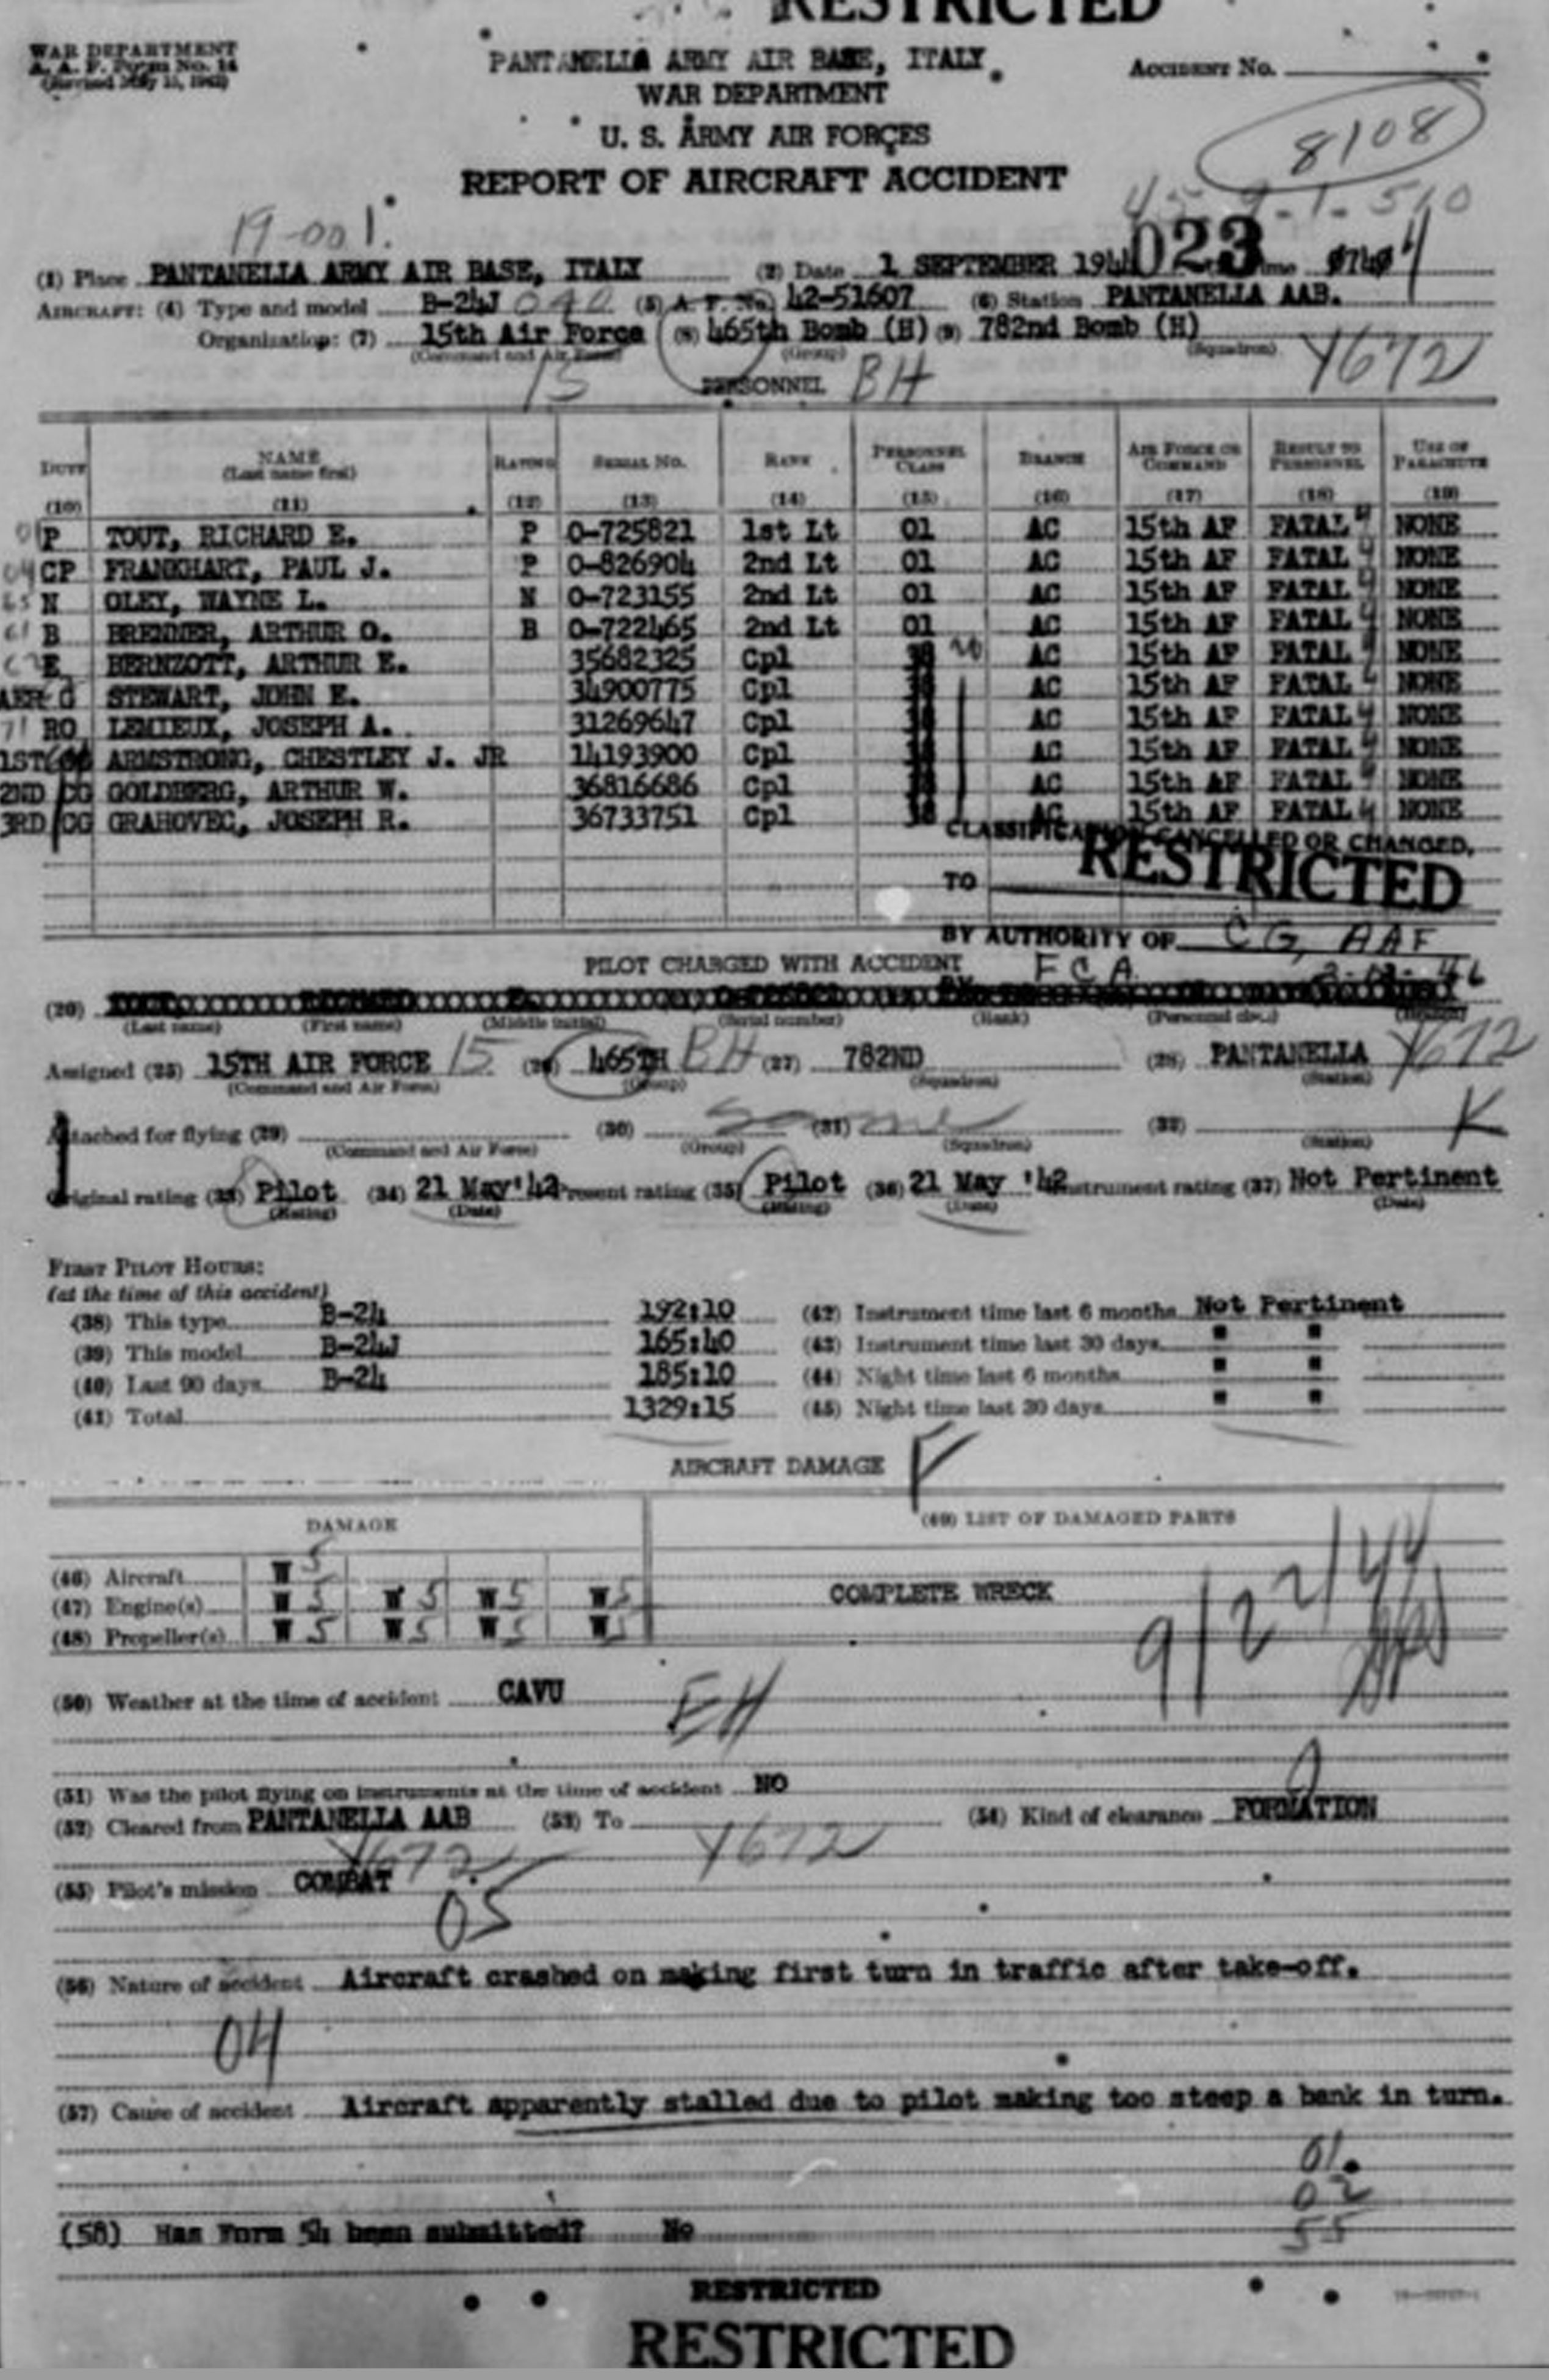 RESTRICTED
WAR DEPARTMENT
A. A. F. Form No. 14
(Revised May 15, 1942)
PANTANELLA ARMY AIR BASE, ITALY
Accident No.
WAR DEPARTMENT
U. S. ARMY AIR FORCES
8108
REPORT OF AIRCRAFT ACCIDENT
45-9-1-510
19-001.
023
(1) Place PANTANELLA ARMY AIR BASE, ITALY (2) Date 1 SEPTEMBER 1944
AIRCRAFT: (4) Type and model B-24J 040 (5) A. F. No. 42-51607 (6) Station PANTANELLA AAB.
Organization: (7) 15th Air Force (8) 465th Bomb (H) (9) 782nd Bomb (H)
(Command and Air Force) (Group) (Squadron)
15 PERSONNEL BH Y672
DUTY NAME (Last name first) RATING SERIAL NO. RANK PERSONNEL CLASS BRANCH AIR FORCE OR COMMAND RESULT TO PERSONNEL USE OF PARACHUTE
(10) (11) (12) (13) (14) (15) (16) (17) (18) (19)
P TOUT, RICHARD E. P O-725821 1st Lt 01 AC 15th AF FATAL 4 NONE
CP FRANKHART, PAUL J. P O-826904 2nd Lt 01 AC 15th AF FATAL 4 NONE
N OLEY, WAYNE L. N O-723155 2nd Lt 01 AC 15th AF FATAL 4 NONE
B BRENNER, ARTHUR O. B O-722465 2nd Lt 01 AC 15th AF FATAL 4 NONE
E BERNZOTT, ARTHUR E. 35682325 Cpl AC 15th AF FATAL NONE
AER G STEWART, JOHN E. 34900775 Cpl AC 15th AF FATAL NONE
71 RO LEMIEUX, JOSEPH A. 31269647 Cpl AC 15th AF FATAL 4 NONE
1ST ARMSTRONG, CHESTLEY J. JR 14193900 Cpl AC 15th AF FATAL 4 NONE
2ND CG GOLDBERG, ARTHUR W. 36816686 Cpl AC 15th AF FATAL NONE
3RD CG GRAHOVEC, JOSEPH R. 36733751 Cpl AC 15th AF FATAL 4 NONE
CLASSIFICATION CANCELLED OR CHANGED,
TO RESTRICTED
BY AUTHORITY OF CG, AAF
PILOT CHARGED WITH ACCIDENT
BY FCA
(20)
(Last name) (First name) (Middle initial) (Serial number) (Rank) (Personnel class) (Branch)
Assigned (25) 15TH AIR FORCE 15 (26) 465TH BH (27) 782ND (28) PANTANELLA Y672
(Command and Air Force) (Group) (Squadron) (Station)
Attached for flying (29) (30) same (31) (32) K
(Command and Air Force) (Group) (Squadron) (Station)
Original rating (33) Pilot (34) 21 May'42 Present rating (35) Pilot (36) 21 May '42 Instrument rating (37) Not Pertinent
(Rating) (Date) (Rating) (Date) (Date)
FIRST PILOT HOURS:
(at the time of this accident)
(38) This type B-24 192:10 (42) Instrument time last 6 months Not Pertinent
(39) This model B-24J 165:40 (43) Instrument time last 30 days " "
(40) Last 90 days B-24 185:10 (44) Night time last 6 months " "
(41) Total 1329:15 (45) Night time last 30 days " "
AIRCRAFT DAMAGE
DAMAGE (49) LIST OF DAMAGED PARTS
(46) Aircraft W 5
(47) Engine(s) W 5 W 5 W 5 W 5 COMPLETE WRECK
(48) Propeller(s) W 5 W 5 W 5 W 5
9/22/44
(50) Weather at the time of accident CAVU
EH
(51) Was the pilot flying on instruments at the time of accident NO
(52) Cleared from PANTANELLA AAB (53) To (54) Kind of clearance FORMATION
Y672 Y672
(55) Pilot's mission COMBAT
05
(56) Nature of accident Aircraft crashed on making first turn in traffic after take-off.
04
(57) Cause of accident Aircraft apparently stalled due to pilot making too steep a bank in turn.
01.
02
55
(58) Has Form 54 been submitted? No
RESTRICTED
RESTRICTED